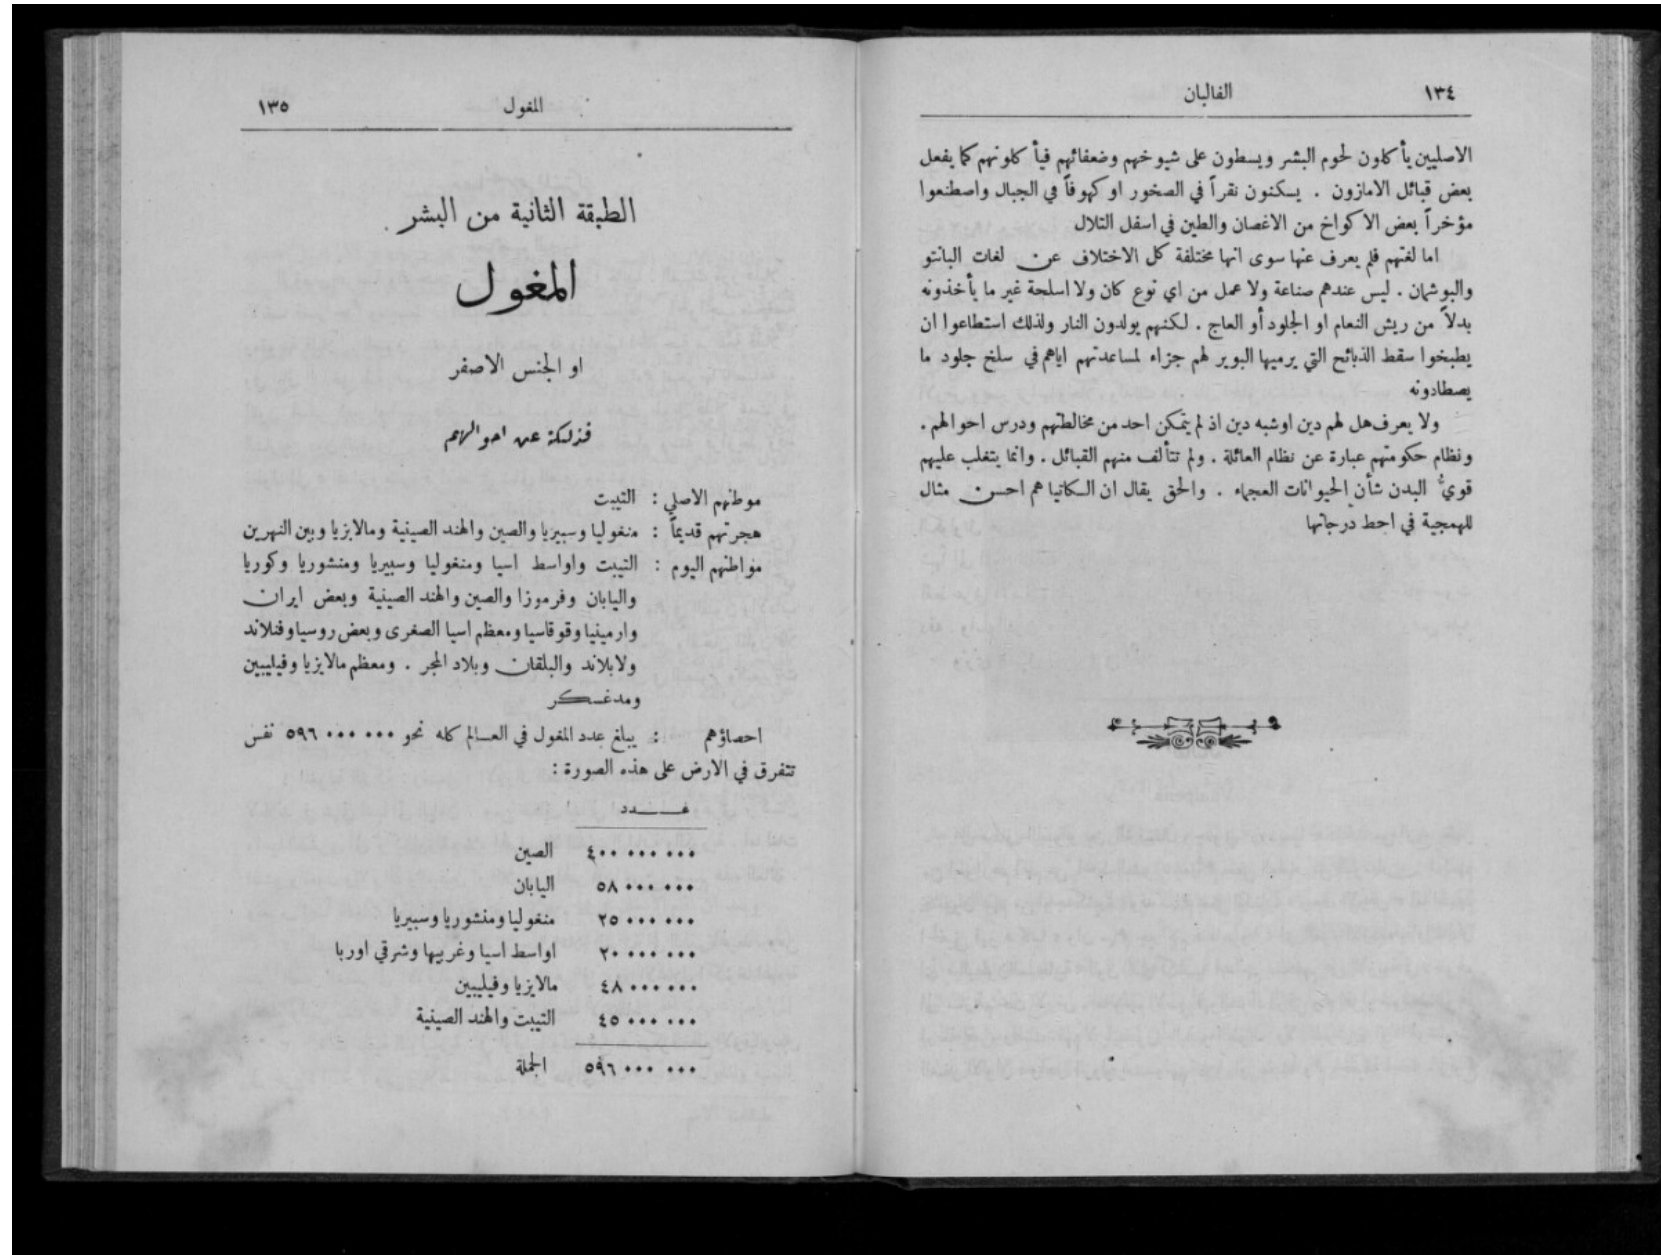 ١٣٤
الفالبان
الاصليين يأكلون لحوم البشر ويسطون على شيوخهم وضعفائهم فيأكلونهم كما يفعل
بعض قبائل الامازون . يسكنون نقراً في الصخور او كهوفاً في الجبال واصطنعوا
مؤخراً بعض الاكواخ من الاغصان والطين في اسفل التلال
اما لغتهم فلم يعرف عنها سوى انها مختلفة كل الاختلاف عن لغات البانتو
والبوشمان . ليس عندهم صناعة ولا عمل من اي نوع كان ولا اسلحة غير ما يأخذونه
بدلاً من ريش النعام او الجلود أو العاج . لكنهم يولدون النار ولذلك استطاعوا ان
يطبخوا سقط الذبائح التي يرميها البوير لهم جزاء لمساعدتهم اياهم في سلخ جلود ما
يصطادونه
ولا يعرف هل لهم دين اوشبه دين اذ لم يتمكن احد من مخالطتهم ودرس احوالهم .
ونظام حكومتهم عبارة عن نظام العائلة . ولم تتألف منهم القبائل . وانما يتغلب عليهم
قويُّ البدن شأن الحيوانات العجماء . والحق يقال ان الكاتيا هم احسن مثال
للهمجية في احط درجاتها
المغول
١٣٥
الطبقة الثانية من البشر
المغول
او الجنس الاصفر
فذلكة عن احوالهم
موطنهم الاصلي : التيبت
هجرتهم قديماً : منغوليا وسيبريا والصين والهند الصينية ومالايزيا وبين النهرين
مواطنهم اليوم : التيبت واواسط اسيا ومنغوليا وسيبريا ومنشوريا وكوريا
واليابان وفرموزا والصين والهند الصينية وبعض ايران
وارمينيا وقوقاسيا ومعظم اسيا الصغرى وبعض روسيا وفنلاند
ولابلاند والبلقان وبلاد المجر . ومعظم مالايزيا وفيليبين
ومدغسكر
احصاؤهم : يبلغ عدد المغول في العالم كله نحو ٥٩٦٠٠٠٠٠٠ نفس
تتفرق في الارض على هذه الصورة :
عدد
٤٠٠٠٠٠٠٠٠ الصين
٥٨٠٠٠٠٠٠ اليابان
٢٥٠٠٠٠٠٠ منغوليا ومنشوريا وسيبريا
٢٠٠٠٠٠٠٠ اواسط اسيا وغربيها وشرقي اوربا
٤٨٠٠٠٠٠٠ مالايزيا وفيليبين
٤٥٠٠٠٠٠٠ التيبت والهند الصينية
٥٩٦٠٠٠٠٠٠ الجملة